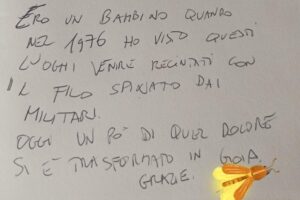 ERO UN BAMBINO QUANDO
NEL 1976 HO VISTO QUESTI
LUOGHI VENIRE RECINTATI CON
IL FILO SPINATO DAI
MILITARI.
OGGI UN PO' DI QUEL DOLORE
SI È TRASFORMATO IN GIOIA.
GRAZIE.